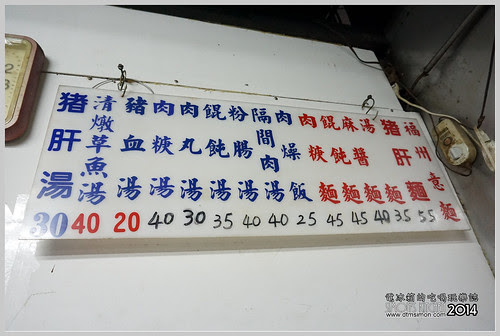 福州意麵
猪肝麵
湯麵
麻醬麵
餛飩麵
肉焿麵
肉燥飯
隔間肉湯
粉腸湯
餛飩湯
肉丸湯
肉焿湯
豬血湯
清燉草魚湯
猪肝湯
30 40 20 40 30 35 40 40 25 45 45 40 35 55
電冰箱的吃喝玩樂誌
www.dtmsimon.com 2014